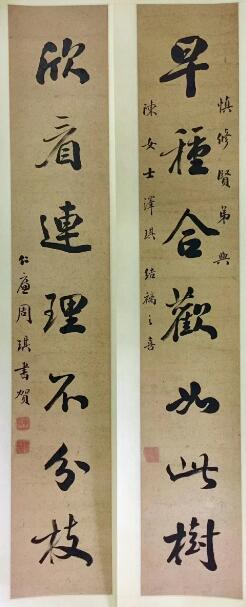 慎修賢弟與
陳女士澤琪結褵之喜
早種合歡如此樹
欣看連理不分枝
仁廉周琪書賀